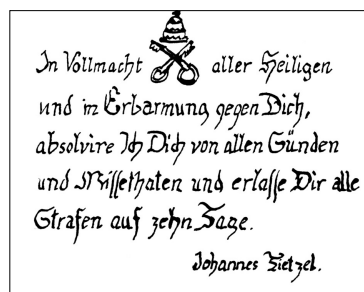 In Vollmacht aller Heiligen
und in Erbarmung gegen Dich,
absolvire Ich Dich von allen Sünden
und Missethaten und erlasse Dir alle
Strafen auf zehn Tage.
Johannes Tietzel.